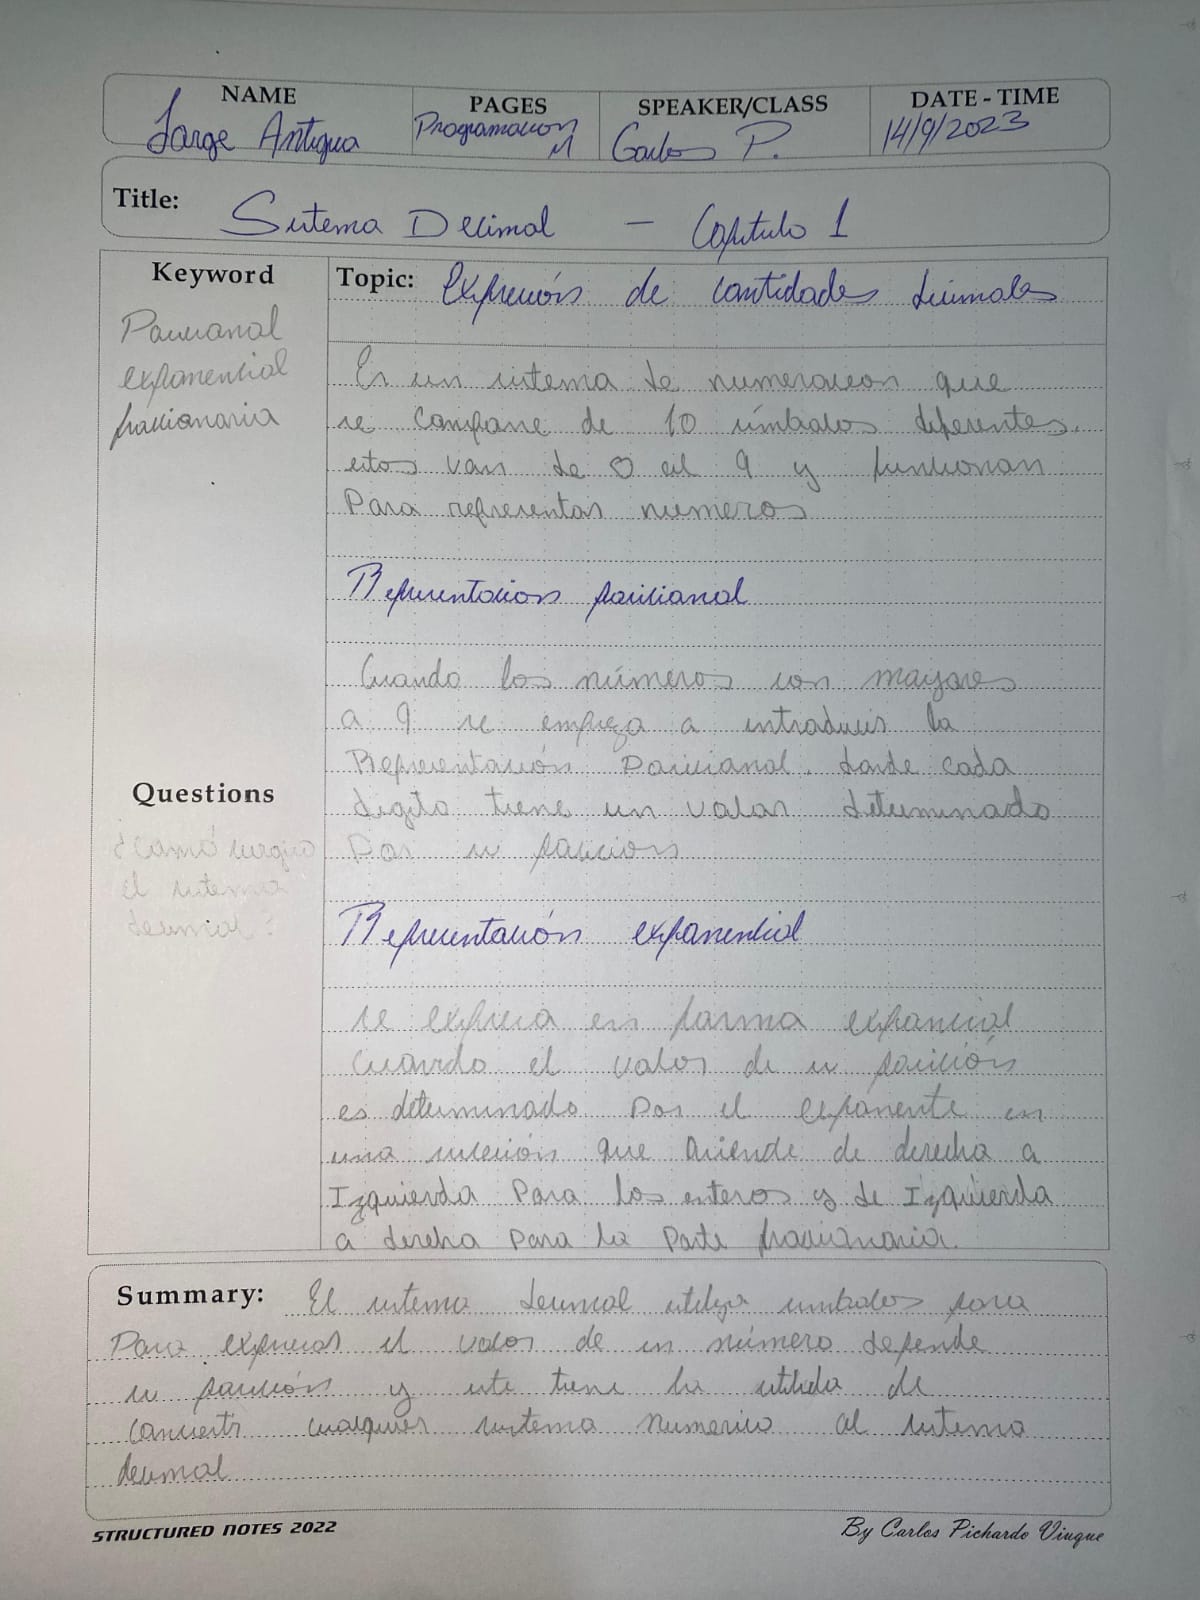 NAME
Jorge Antigua
PAGES
Programacion
1
SPEAKER/CLASS
Carlos P.
DATE - TIME
14/9/2023
Title: Sistema Decimal - Capitulo 1
Keyword
Posicional
exponencial
fraccionaria
Topic: Expresión de cantidades decimales
Es un sistema de numeracion que
se compone de 10 símbolos diferentes.
estos van de 0 al 9 y funcionan
Para representar numeros
Representacion posicional
Cuando los números son mayores
a 9 se empieza a introducir la
Representación Posicional. donde cada
digito tiene un valor determinado
Por su posicion
Questions
¿Comó surgio
el sistema
decimal?
Representación exponencial
se expresa en forma exponcial
cuando el valor de su posición
es determinado por el exponente en
una sucesión que asciende de derecha a
Izquierda Para los enteros y de Izquierda
a derecha para la Parte fraccionaria.
Summary: El sistema decimal utiliza simbolos para
Para expresar el valor de un número depende
su posición y este tiene la utilida de
cualquier sistema numerico al sistema
decimal
STRUCTURED NOTES 2022
By Carlos Pichardo Viuque